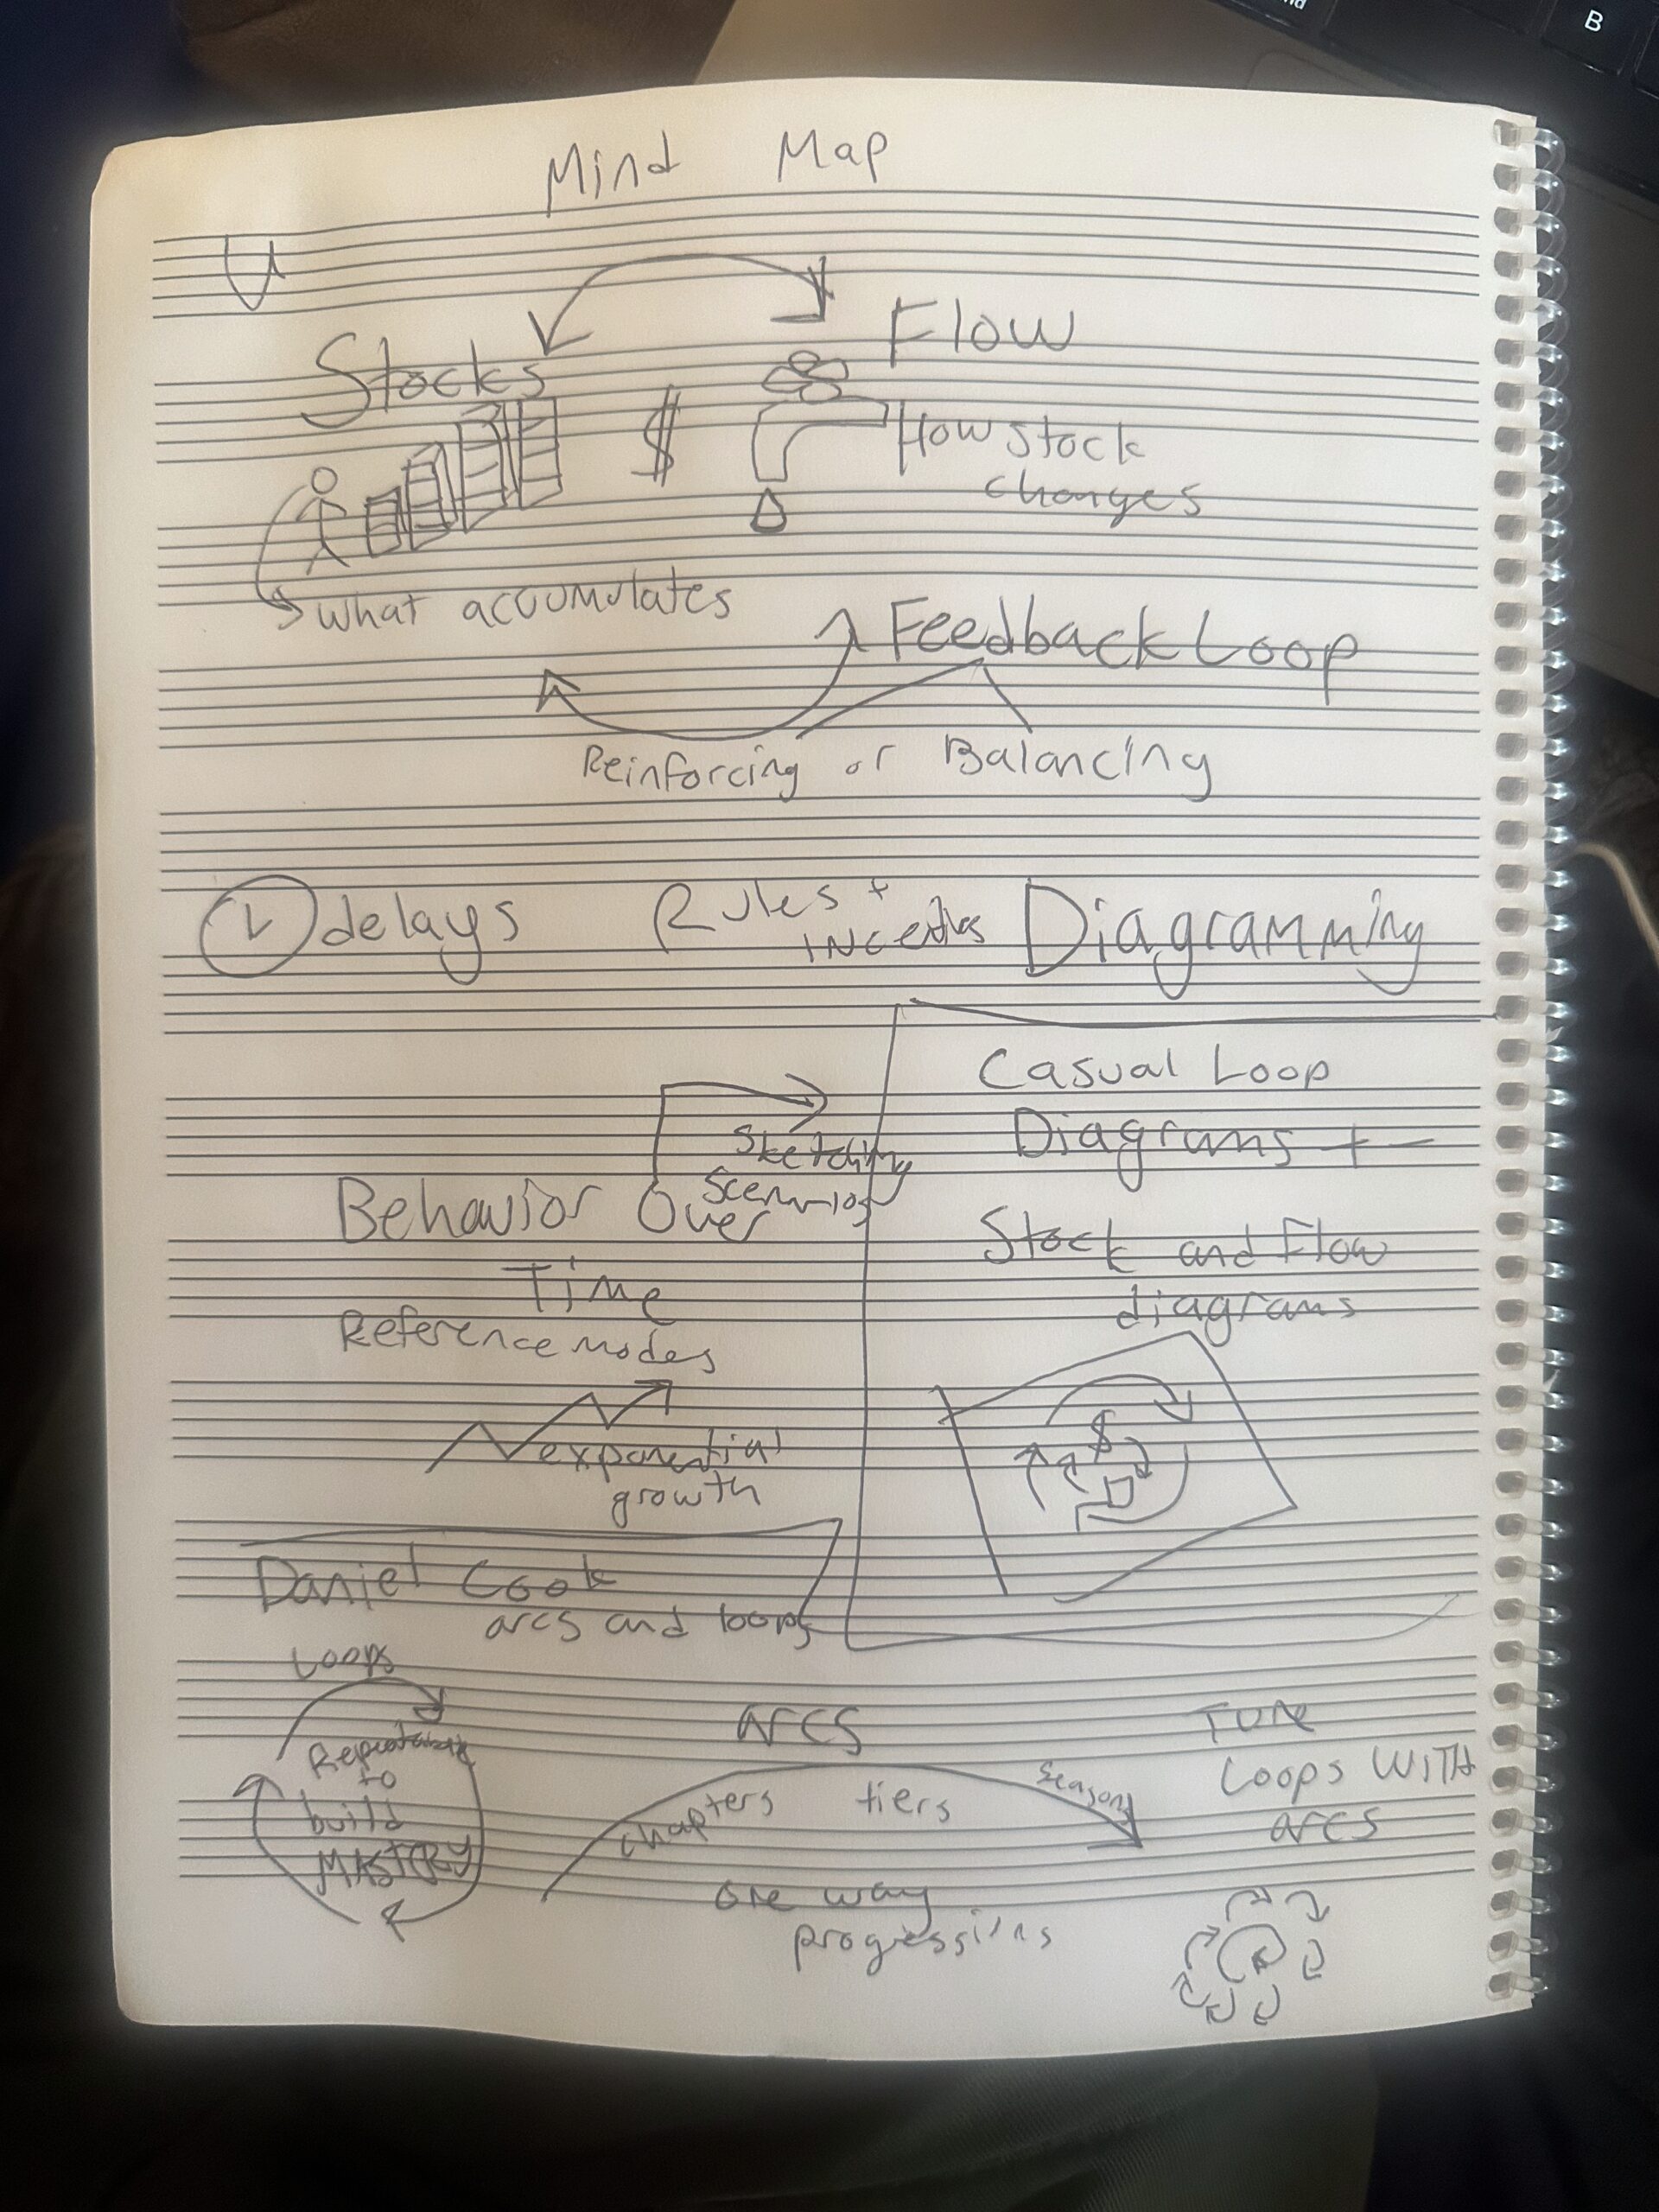 Mind Map
Stocks
Flow
$
How stock
changes
what accumulates
Feedback Loop
Reinforcing or Balancing
delays
Rules +
INcentives
Diagramming
Casual Loop
Diagrams + -
Sketching
Scenarios
Behavior Over
Time
Stock and Flow
diagrams
Reference modes
exponential
growth
$
Daniel Cook
arcs and loops
Loops
Repeatable
to
build
MASTERY
Arcs
chapters tiers seasons
one way
progressions
Tune
Loops WITH
arcs
B